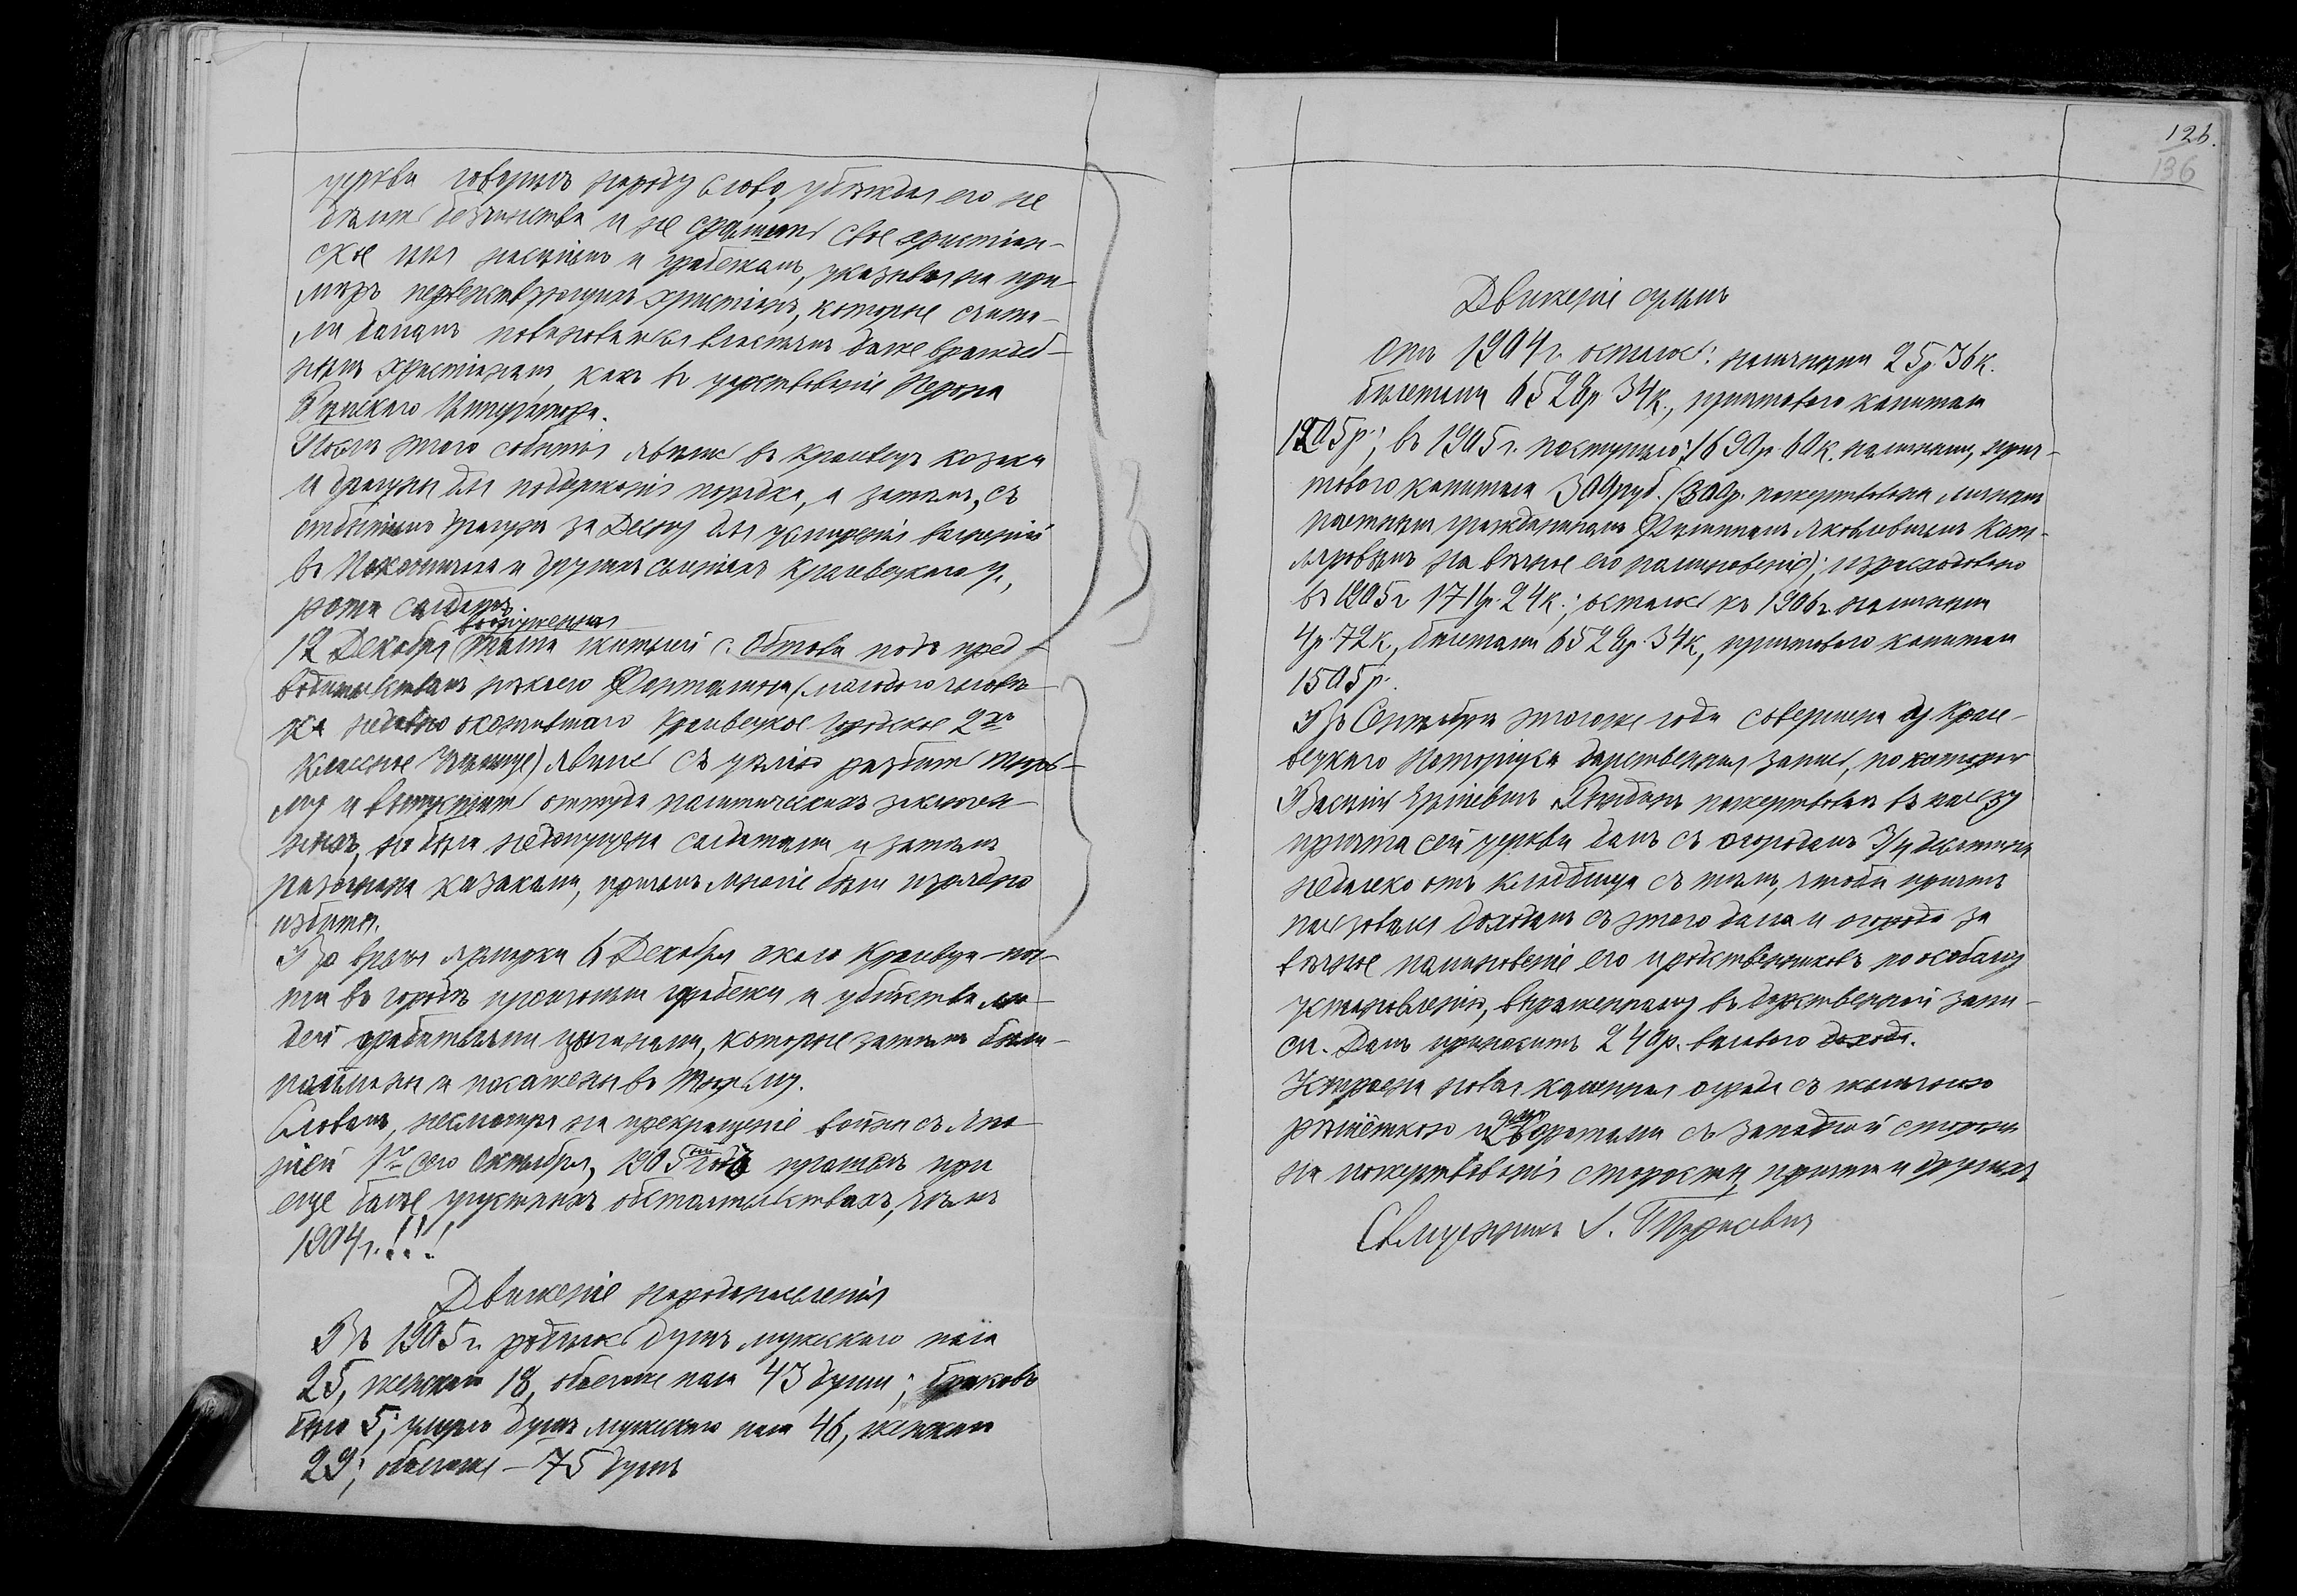 церкви говорилъ народу слово, убѣждая его не
дѣлать безчинства и не срамить свое христіан-
ское имя насиліемъ и грабежамъ, указывая на при-
мѣръ первенствующихъ христіанъ, которые счита-
ли долгомъ повиноваться властямъ даже враждеб-
нымъ христіанамъ, какъ въ царствованіе Нерона
Римскаго Императора.
Послѣ этого событія явились въ Кролевецъ козаки
и драгуны для поддержанія порядка, а затѣмъ, съ
отбытіемъ драгунъ за Десну для усмиренія волненій
въ и другихъ селеніяхъ Кролевецкаго у.,
рота солдатъ.
вооруженная
12 Декабря толпа жителей с. Обтова подъ пред-
водительствомъ нѣкоего (молодого человѣ-
ка недавно окончившаго Кролевецкое Городское 2хъ
классное Училище) явилась съ цѣлію разбить тюрь-
му и выпустить оттуда политическихъ заключен-
ныхъ, но была недопущена солдатами и затѣмъ
разогнана казаками, причемъ многіе были изрядно
избиты.
Во время ярмарки 6 Декабря около Кролевца поч-
ти въ городѣ произошли грабежи и убійства лю-
дей грабителями цыганами, которые затѣмъ были
пойманы и посажены въ тюрьму.
Словомъ, несмотря на прекращеніе войны съ Япо-
ніей 1го сего Октября, 1905й годъ прошелъ при
еще болѣе грустныхъ обстоятельствахъ, чѣмъ
1904 г.!!!
Движеніе народонаселенія
Въ 1905 г. родилось душъ мужескаго пола
25, женскаго 18, обоего же пола 43 души; браковъ
было 5; умерло душъ мужескаго пола 46, женскаго
29; обоего же – 75 душъ
126.
136
Движеніе суммъ
Отъ 1904 г. осталось: наличными 25 р. 36 к.
билетами 6529 р. 34 к., причтоваго капитала
1205 р.; въ 1905 г. поступило: 1690 р. 60 к. наличными, прич-
товаго капитала 300 руб. (300 р. пожертвованы личнымъ
почетнымъ гражданиномъ Филиппомъ Яковлевичемъ
на вѣчное его поминовеніе); израсходовано
въ 1905 г. 1711 р. 24 к.; осталось къ 1906 г. наличными
4 р. 72 к., билетами 6529 р. 34 к., причтоваго капитала
1505 р.
Въ Сентябрѣ этого же года совершена у Кроле-
вецкаго Нотаріуса дарственная запись, по которой
Василій Юрьевичъ пожертвовалъ въ пользу
причта сей церкви домъ съ огородомъ 3/4 десятины
недалеко отъ кладбища съ тѣмъ, чтобы причтъ
пользовался доходомъ съ этого дома и огорода за
вѣчное поминовеніе его и родственниковъ по особому
установленію, выраженному въ дарственной запи-
си. Домъ приноситъ 240 р. валового дохода.
Устроена новая каменная ограда съ желѣзною
рѣшеткою и воротами съ западной стороны
на пожертвованія старосты, причта и другихъ
Священникъ А. Тарасевичъ